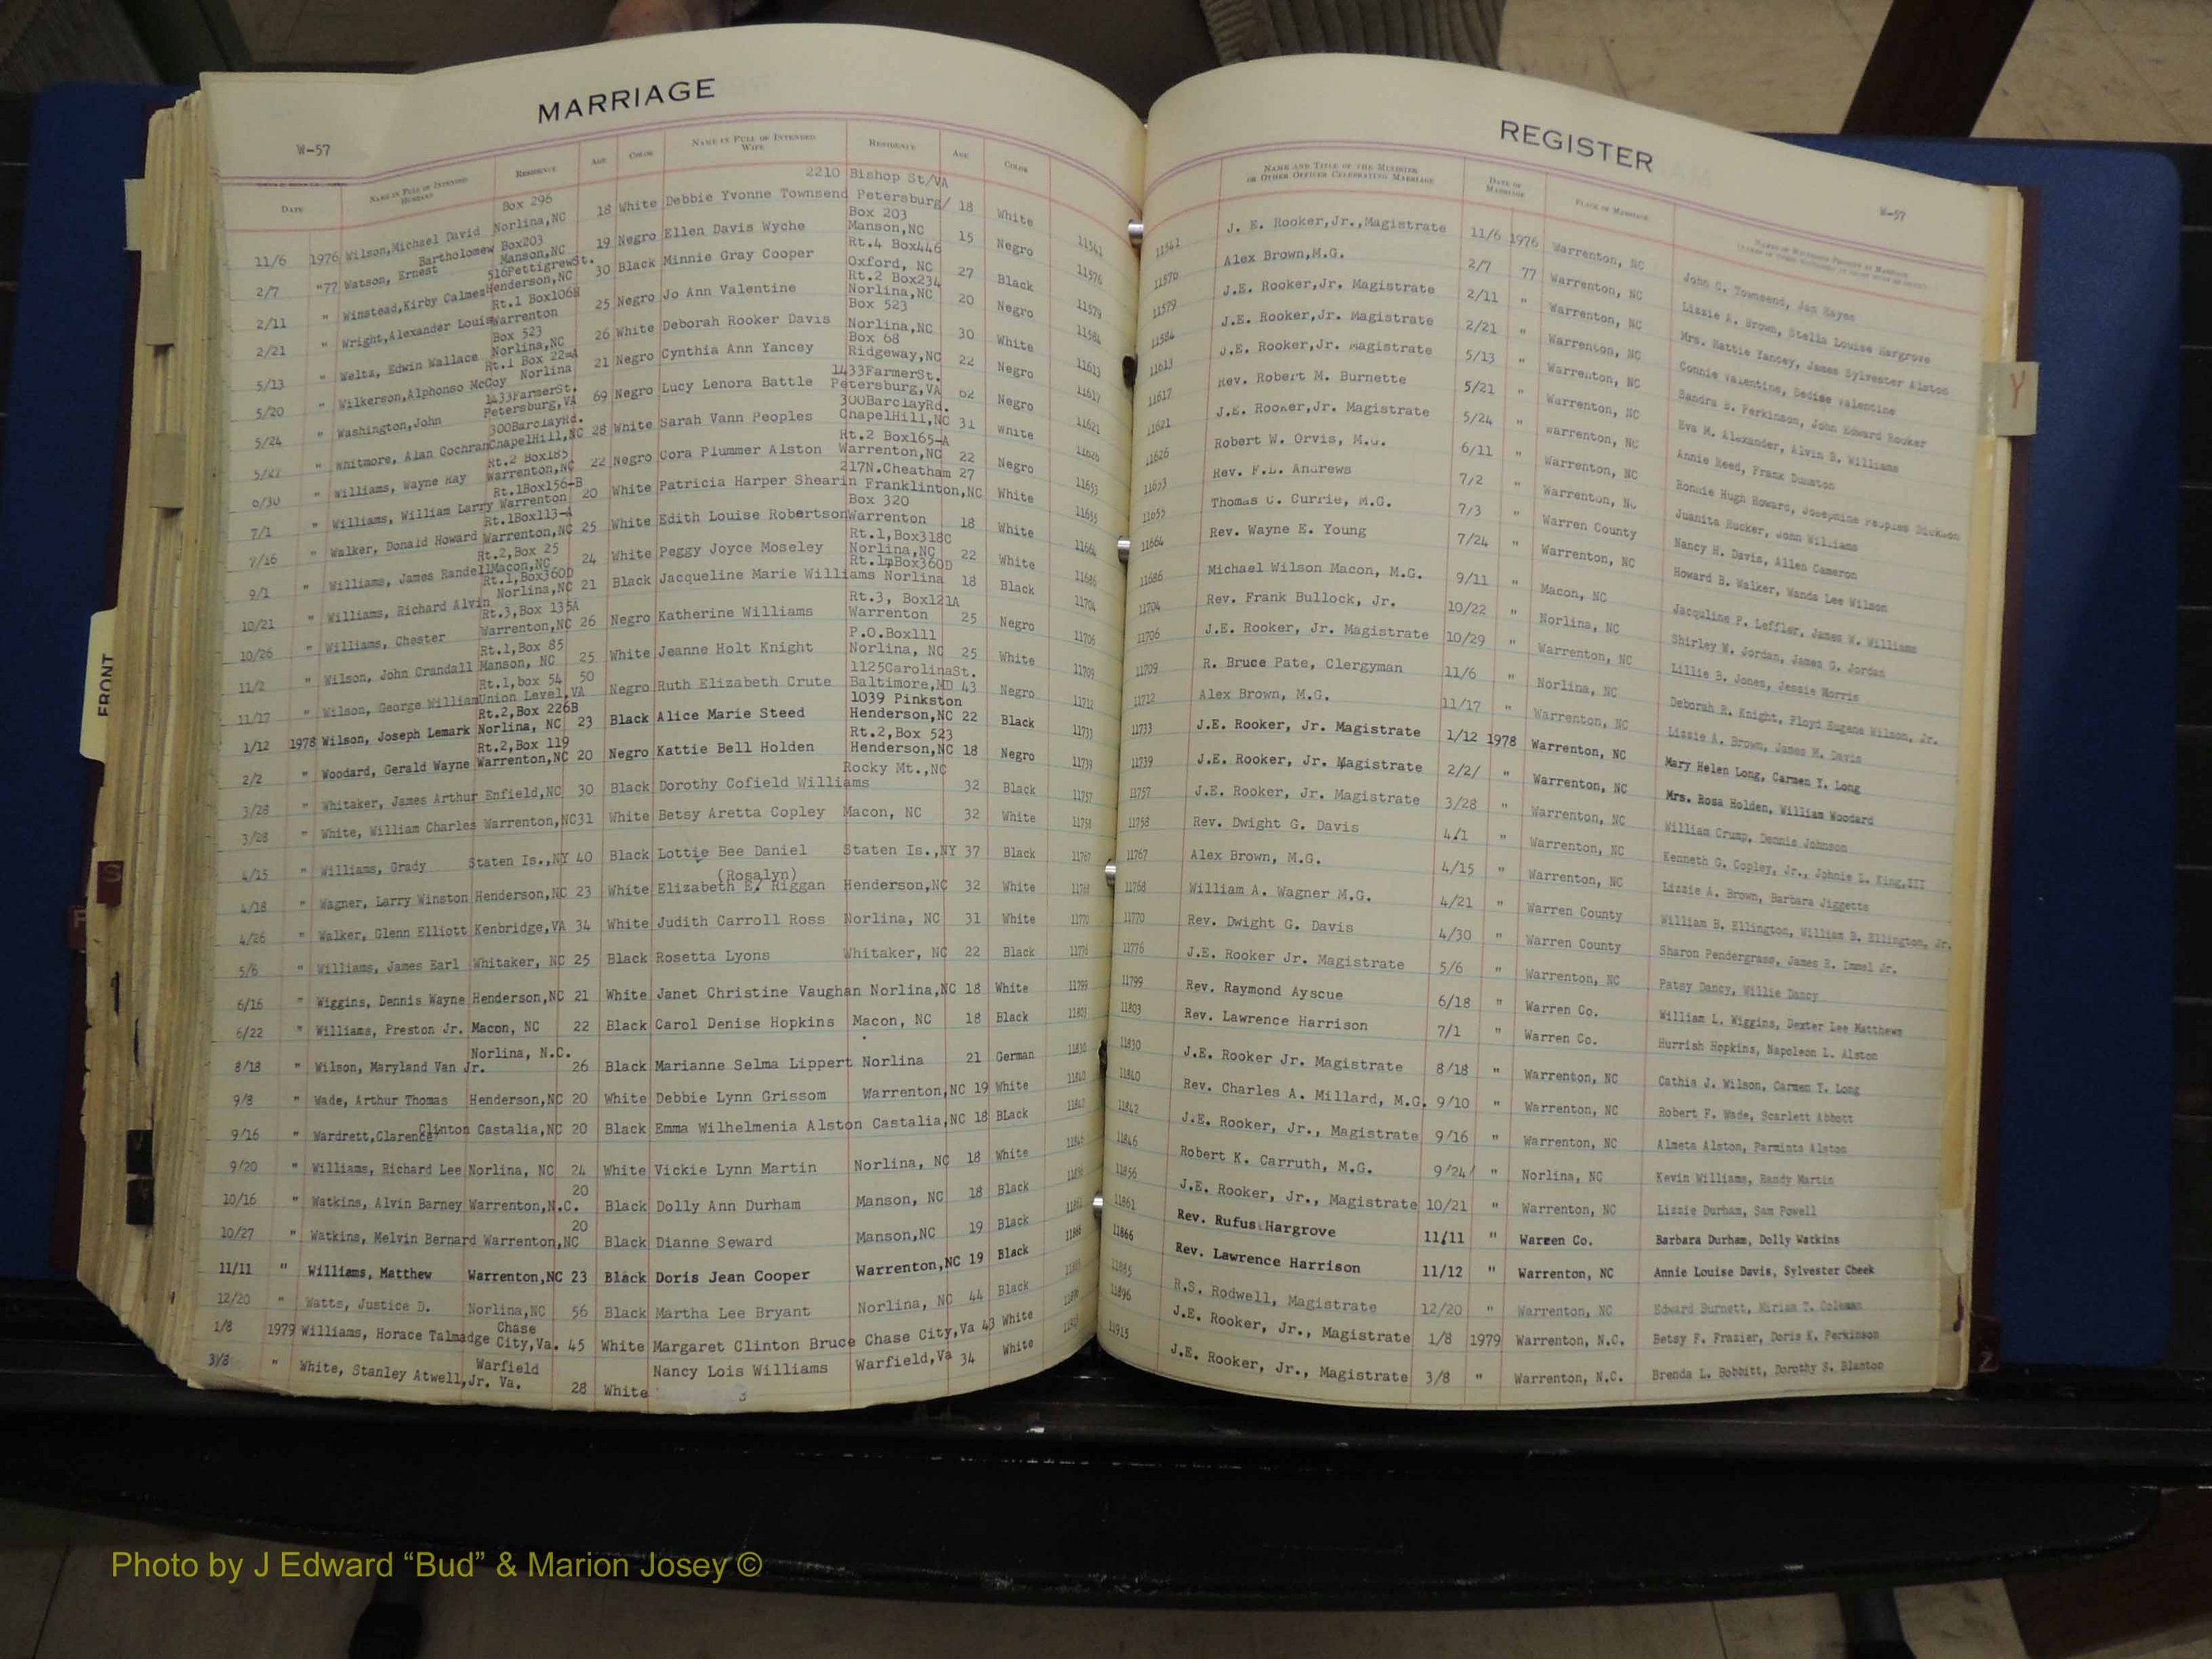 MARRIAGE
W-57
DATE NAME IN FULL OF INTENDED HUSBAND RESIDENCE AGE COLOR NAME IN FULL OF INTENDED WIFE RESIDENCE AGE COLOR
2210 Bishop St/VA
Box 296
11/6 1976 Wilson, Michael David Norlina,NC 18 White Debbie Yvonne Townsend Petersburg/ 18 White 11541
Bartholomew Box203 Box 203
2/7 "77 Watson, Ernest Manson,NC 19 Negro Ellen Davis Wyche Manson,NC 15 Negro 11576
516PettigrewSt. Rt.4 Box446
2/11 " Winstead,Kirby Calmez Henderson,NC 30 Black Minnie Gray Cooper Oxford, NC 27 Black 11579
Rt.1 Box106B Rt.2 Box234
2/21 " Wright,Alexander Louis Warrenton 25 Negro Jo Ann Valentine Norlina,NC 20 Negro 11584
Box 523 Box 523
5/13 " Weltz, Edwin Wallace Norlina,NC 26 White Deborah Rooker Davis Norlina,NC 30 White 11613
Rt.1 Box 22=A Box 68
5/20 " Wilkerson,Alphonso McCoy Norlina 21 Negro Cynthia Ann Yancey Ridgeway,NC 22 Negro 11617
1433FarmerSt. 1433FarmerSt.
5/24 " Washington,John Petersburg,VA 69 Negro Lucy Lenora Battle Petersburg,VA 62 Negro 11621
300BarclayRd. 300BarclayRd.
5/27 " Whitmore, Alan Cochran ChapelHill,NC 28 White Sarah Vann Peoples ChapelHill,NC 31 White 11626
Rt.2 Box185 Rt.2 Box165-A
6/30 " Williams, Wayne Ray Warrenton,NC 22 Negro Cora Plummer Alston Warrenton,NC 22 Negro 11653
Rt.1Box156-B 217N.Cheatham
7/1 " Williams, William Larry Warrenton 20 White Patricia Harper Shearin Franklinton,NC 27 White 11655
Rt.1Box113-A Box 320
7/16 " Walker, Donald Howard Warrenton,NC 25 White Edith Louise Robertson Warrenton 18 White 11664
Rt.2,Box 25 Rt.1,Box318C
9/1 " Williams, James Randell Macon,NC 24 White Peggy Joyce Moseley Norlina,NC 22 White 11686
Rt.1,Box360D Rt.1mBox360D
10/21 " Williams, Richard Alvin Norlina,NC 21 Black Jacqueline Marie Williams Norlina 18 Black 11704
Rt.3,Box 135A Rt.3, Box121A
10/26 " Williams, Chester Warrenton,NC 26 Negro Katherine Williams Warrenton 25 Negro 11706
Rt.1,Box 85 P.O.Box111
11/2 " Wilson, John Crandall Manson, NC 25 White Jeanne Holt Knight Norlina, NC 25 White 11709
Rt.1,box 54 1125CarolinaSt.
11/17 " Wilson, George William Union Level,VA 50 Negro Ruth Elizabeth Crute Baltimore,MD 43 Negro 11712
Rt.2,Box 226B 1039 Pinkston
1/12 1978 Wilson, Joseph Lemark Norlina, NC 23 Black Alice Marie Steed Henderson,NC 22 Black 11733
Rt.2,Box 119 Rt.2,Box 523
2/2 " Woodard, Gerald Wayne Warrenton,NC 20 Negro Kattie Bell Holden Henderson,NC 18 Negro 11739
Rocky Mt.,NC
3/28 " Whitaker, James Arthur Enfield,NC 30 Black Dorothy Cofield Williams 32 Black 11757
3/28 " White, William Charles Warrenton,NC31 White Betsy Aretta Copley Macon, NC 32 White 11758
4/15 " Williams, Grady Staten Is.,NY 40 Black Lottie Bee Daniel Staten Is.,NY 37 Black 11767
(Rosalyn)
4/18 " Wagner, Larry Winston Henderson,NC 23 White Elizabeth E. Riggan Henderson,NC 32 White 11768
4/26 " Walker, Glenn Elliott Kenbridge,VA 34 White Judith Carroll Ross Norlina, NC 31 White 11770
5/6 " Williams, James Earl Whitaker, NC 25 Black Rosetta Lyons Whitaker, NC 22 Black 11776
6/16 " Wiggins, Dennis Wayne Henderson,NC 21 White Janet Christine Vaughan Norlina,NC 18 White 11799
6/22 " Williams, Preston Jr. Macon, NC 22 Black Carol Denise Hopkins Macon, NC 18 Black 11803
Norlina, N.C.
8/18 " Wilson, Maryland Van Jr. 26 Black Marianne Selma Lippert Norlina 21 German 11830
9/8 " Wade, Arthur Thomas Henderson,NC 20 White Debbie Lynn Grissom Warrenton,NC 19 White 11840
9/16 " Wardrett,Clarence Clinton Castalia,NC 20 Black Emma Wilhelmenia Alston Castalia,NC 18 BLack 11842
9/20 " Williams, Richard Lee Norlina, NC 24 White Vickie Lynn Martin Norlina, NC 18 White 11846
10/16 " Watkins, Alvin Barney Warrenton,N.C. 20 Black Dolly Ann Durham Manson, NC 18 Black 11856
10/27 " Watkins, Melvin Bernard Warrenton,NC 20 Black Dianne Seward Manson,NC 19 Black 11861
11/11 " Williams, Matthew Warrenton,NC 23 Black Doris Jean Cooper Warrenton,NC 19 Black 11866
12/20 " Watts, Justice D. Norlina,NC 56 Black Martha Lee Bryant Norlina, NC 44 Black 11885
Chase
1/8 1979 Williams, Horace Talmadge City,Va. 45 White Margaret Clinton Bruce Chase City,Va 43 White 11896
Warfield
3/8 " White, Stanley Atwell,Jr. Va. 28 White Nancy Lois Williams Warfield,Va 34 White
REGISTER
W-57
NAME AND TITLE OF THE MINISTER OR OTHER OFFICER CELEBRATING MARRIAGE DATE OF MARRIAGE PLACE OF MARRIAGE
11541 J. E. Rooker,Jr.,Magistrate 11/6 1976 Warrenton, NC John C. Townsend, Jan Hayes
11576 Alex Brown,M.G. 2/7 77 Warrenton, NC Lizzie A. Brown, Stella Louise Hargrove
11579 J.E. Rooker,Jr. Magistrate 2/11 " Warrenton, NC Mrs. Hattie Yancey, James Sylvester Alston
11584 J.E. Rooker,Jr. Magistrate 2/21 " Warrenton, NC Connie Valentine, Dedise Valentine
11613 J.E. Rooker,Jr. Magistrate 5/13 " Warrenton, NC Sandra S. Perkinson, John Edward Rooker
11617 Rev. Robert M. Burnette 5/21 " Warrenton, NC Eva M. Alexander, Alvin B. Williams
11621 J.E. Rooker,Jr. Magistrate 5/24 " Warrenton, NC Annie Reed, Frank Dunston
11626 Robert W. Orvis, M.G. 6/11 " Warrenton, NC Ronnie Hugh Howard, Josephine Peoples Dickson
11653 Rev. F.L. Andrews 7/2 " Warrenton, NC Juanita Rucker, John Williams
11655 Thomas C. Currie, M.G. 7/3 " Warren County Nancy H. Davis, Allen Cameron
11664 Rev. Wayne E. Young 7/24 " Warrenton, NC Howard B. Walker, Wanda Lee Wilson
11686 Michael Wilson Macon, M.G. 9/11 " Macon, NC Jacquline P. Leffler, James W. Williams
11704 Rev. Frank Bullock, Jr. 10/22 " Norlina, NC Shirley W. Jordan, James G. Jordan
11706 J.E. Rooker, Jr. Magistrate 10/29 " Warrenton, NC Lillie B. Jones, Jessie Morris
11709 R. Bruce Pate, Clergyman 11/6 " Norlina, NC Deborah R. Knight, Floyd Eugene Wilson, Jr.
11712 Alex Brown, M.G. 11/17 " Warrenton, NC Lizzie A. Brown, James M. Davis
11733 J.E. Rooker, Jr. Magistrate 1/12 1978 Warrenton, NC Mary Helen Long, Carmen Y. Long
11739 J.E. Rooker, Jr. Magistrate 2/2/ " Warrenton, NC Mrs. Rosa Holden, William Woodard
11757 J.E. Rooker, Jr. Magistrate 3/28 " Warrenton, NC William Crump, Dennis Johnson
11758 Rev. Dwight G. Davis 4/1 " Warrenton, NC Kenneth G. Copley, Jr., Johnie L. King,III
11767 Alex Brown, M.G. 4/15 " Warrenton, NC Lizzie A. Brown, Barbara Jiggetts
11768 William A. Wagner M.G. 4/21 " Warren County William B. Ellington, William B. Ellington, Jr.
11770 Rev. Dwight G. Davis 4/30 " Warren County Sharon Pendergrass, James R. Immel Jr.
11776 J.E. Rooker Jr. Magistrate 5/6 " Warrenton, NC Patsy Dancy, Willie Dancy
11799 Rev. Raymond Ayscue 6/18 " Warren Co. William L. Wiggins, Dexter Lee Matthews
11803 Rev. Lawrence Harrison 7/1 " Warren Co. Hurrish Hopkins, Napoleon L. Alston
11830 J.E. Rooker Jr. Magistrate 8/18 " Warrenton, NC Cathia J. Wilson, Carmen Y. Long
11840 Rev. Charles A. Millard, M.G. 9/10 " Warrenton, NC Robert F. Wade, Scarlett Abbott
11842 J.E. Rooker, Jr., Magistrate 9/16 " Warrenton, NC Almeta Alston, Parmints Alston
11846 Robert K. Carruth, M.G. 9/24/ " Norlina, NC Kevin Williams, Randy Martin
11856 J.E. Rooker, Jr., Magistrate 10/21 " Warrenton, NC Lizzie Durham, Sam Powell
11861 Rev. Rufus Hargrove 11/11 " Warren Co. Barbara Durham, Dolly Watkins
11866 Rev. Lawrence Harrison 11/12 " Warrenton, NC Annie Louise Davis, Sylvester Cheek
11885 R.S. Rodwell, Magistrate 12/20 " Warrenton, NC Edward Burnett, Miriam T. Coleman
11896 J.E. Rooker, Jr., Magistrate 1/8 1979 Warrenton, N.C. Betsy F. Frazier, Doris K. Perkinson
11915 J.E. Rooker, Jr., Magistrate 3/8 " Warrenton, N.C. Brenda L. Bobbitt, Dorothy S. Blanton
FRONT
S
Y
Z
Photo by J Edward “Bud” & Marion Josey ©